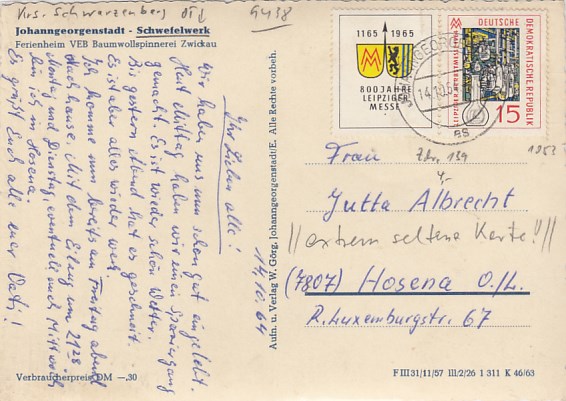 Krs. Schwarzenberg
9438
Johanngeorgenstadt - Schwefelwerk
Ferienheim VEB Baumwollspinnerei Zwickau
Ihr Lieben alle!
Wir haben uns nun schon gut eingelebt.
Heut Mittag haben wir einen Spaziergang
gemacht. Es ist wieder schön Wetter.
Bis gestern Abend hat es geschneit.
Es ist aber alles wieder weg.
Ich komme nun bereits am Freitag abend
nach hause, mit dem Eilzug um 21²⁸.
Montag und Dienstag, eventuell auch Mittwoch
bin ich in Hosena.
Es grüßt Euch alle euer Vati!
14.10.64
Aufn. u. Verlag W. Görg, Johanngeorgenstadt/E. Alle Rechte vorbeh.
Verbraucherpreis DM —,30
1165 1965
MM
800 JAHRE
LEIPZIGER
MESSE
DEUTSCHE
DEMOKRATISCHE REPUBLIK
15
JOHANNGEORGENSTADT
14.10.64
Frau
Zdr. 139
1052
Jutta Albrecht
//extrem seltene Karte!//
(7807) Hosena O./L.
R. Luxemburgstr. 67
F III 31/11/57 III/2/26 1 311 K 46/63